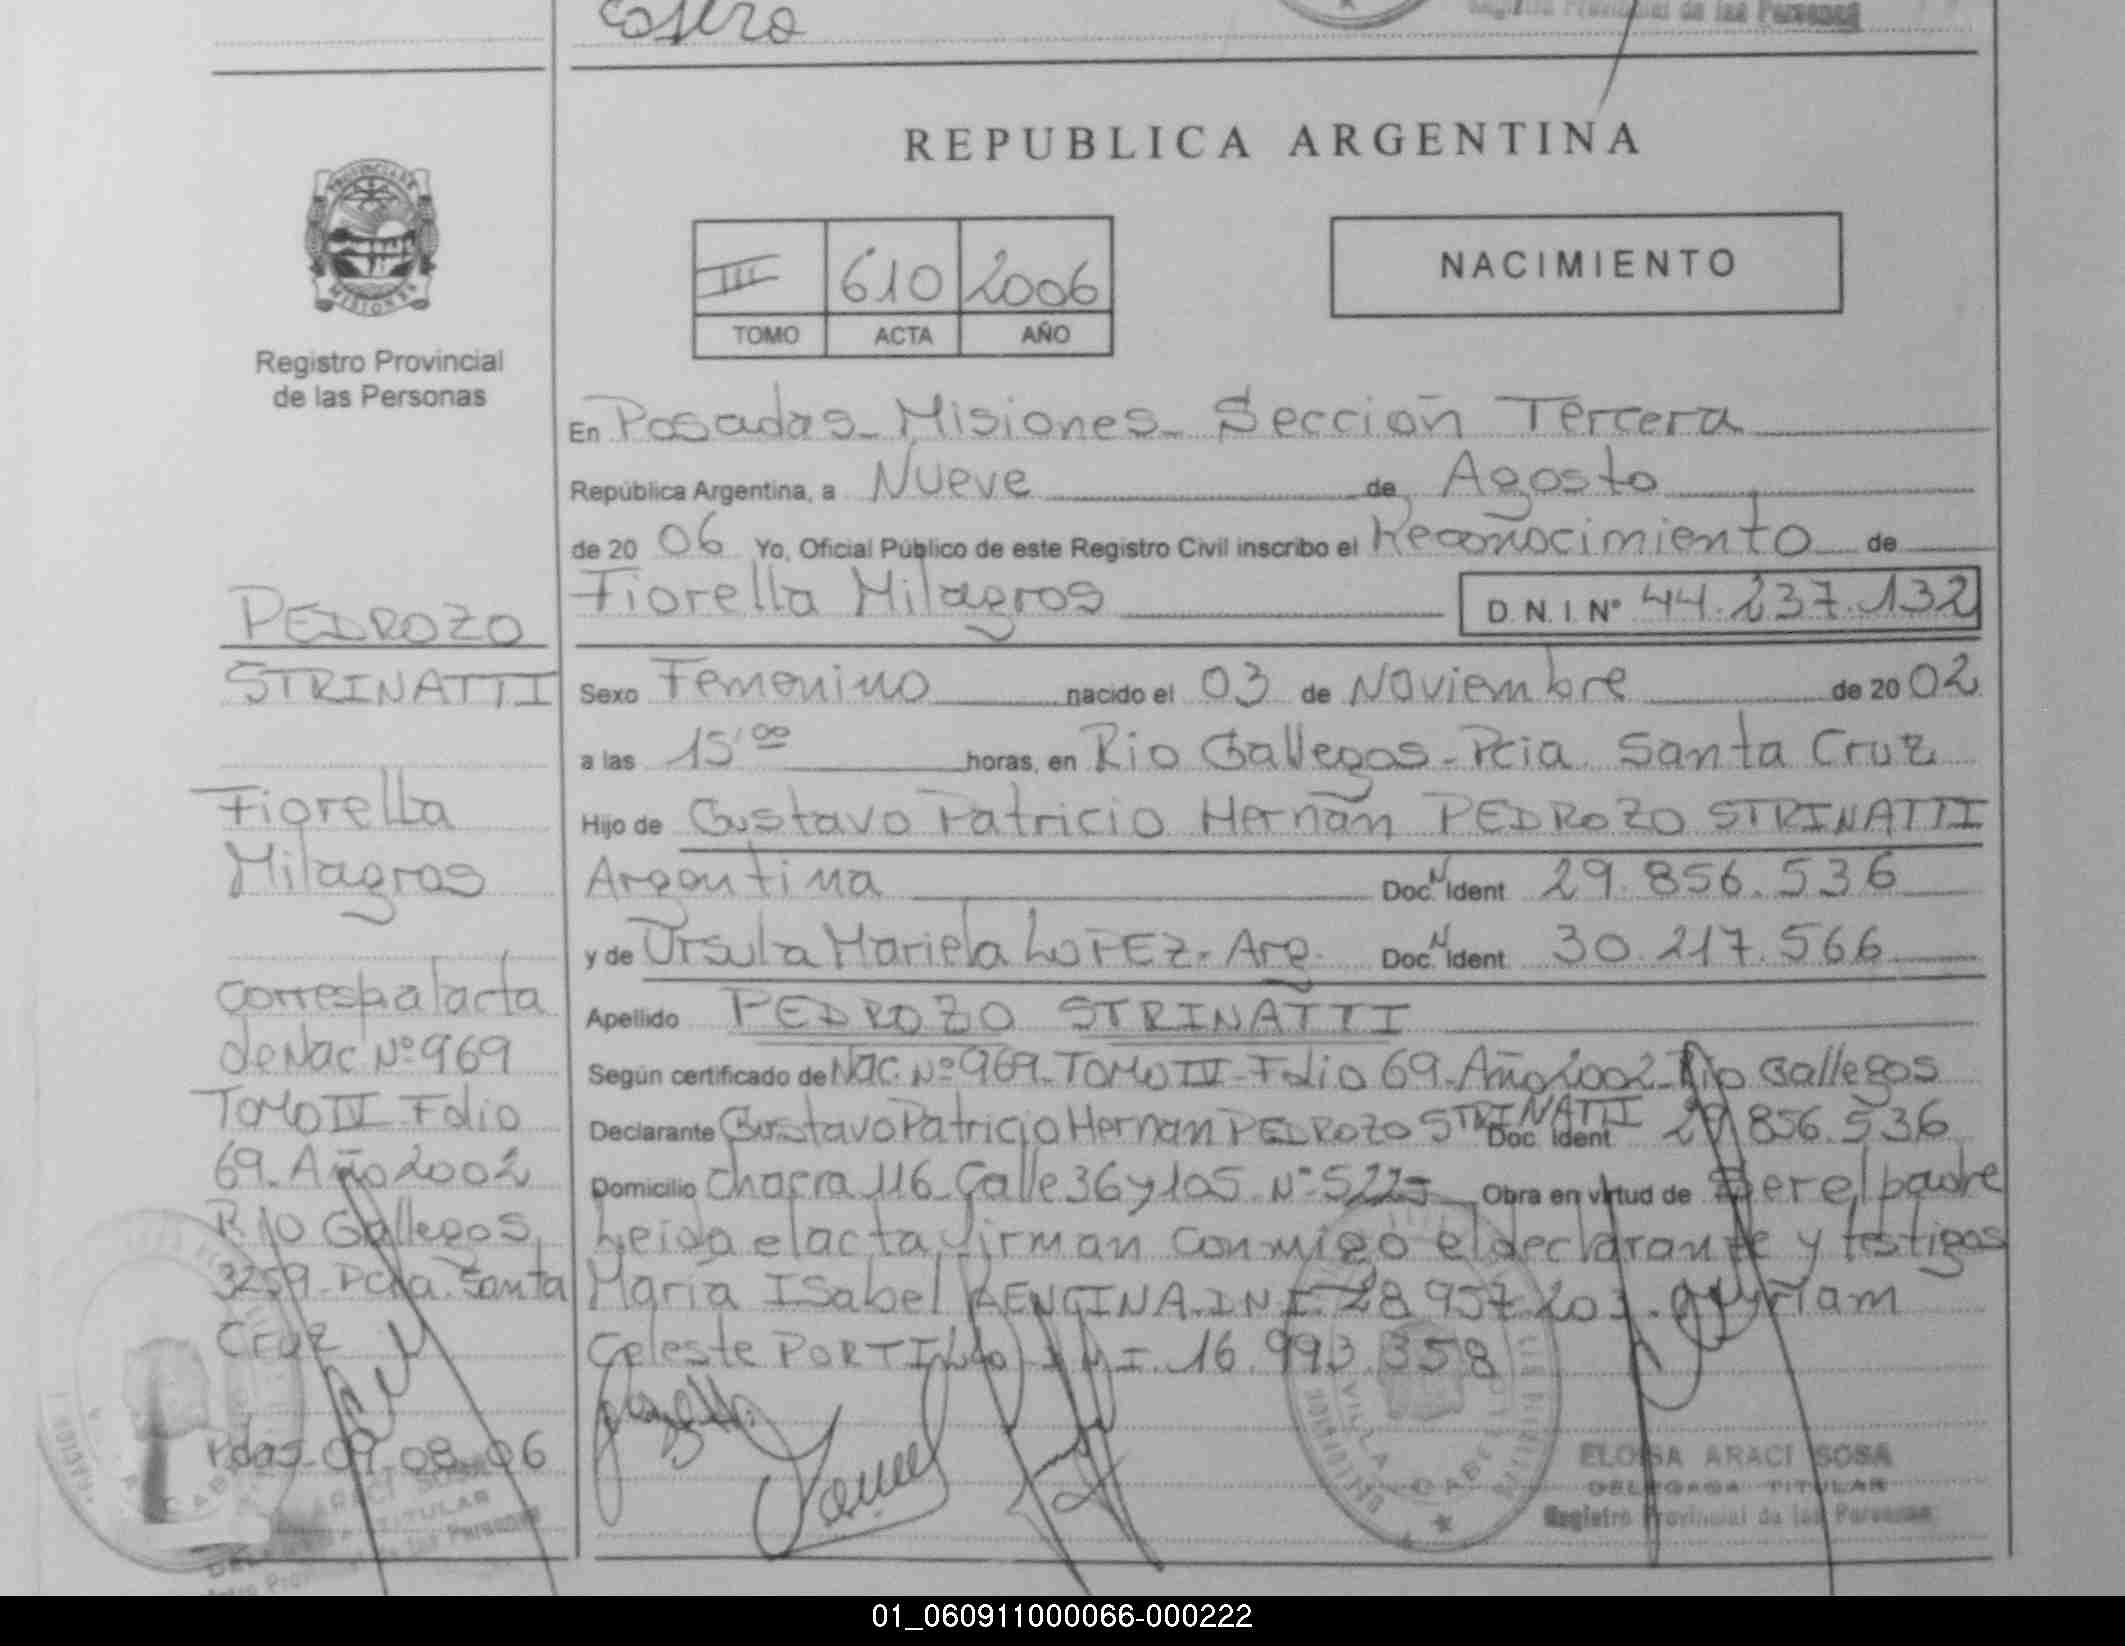 REPUBLICA ARGENTINA
PROVINCIA DE
MISIONES
Registro Provincial
de las Personas
III 610 2006
TOMO ACTA AÑO
NACIMIENTO
En Posadas - Misiones - Sección Tercera
República Argentina, a Nueve de Agosto
de 20 06 Yo, Oficial Público de este Registro Civil inscribo el Reconocimiento de
Fiorella Milagros D.N.I. Nº 44.237.132
Sexo Femenino nacido el 03 de Noviembre de 20 02
a las 15'00 horas, en Rio Gallegos - Pcia. Santa Cruz
Hijo de Gustavo Patricio Hernán PEDROZO STRINATTI
Argentina Doc. N Ident 29.856.536
y de Ursula Mariela LOPEZ - Arg. Doc. N Ident 30.217.566
Apellido PEDROZO STRINATTI
Según certificado de Nac. Nº 969 - TOMO IV - Folio 69 - Año 2002 - Rio Gallegos
Declarante Gustavo Patricio Hernan PEDROZO STRINATTI Doc. Ident 29.856.536
Domicilio Chacra 116 - Calle 36 y 105 Nº 5225 Obra en virtud de Ser el padre
Leida el acta, firman conmigo el declarante y testigos
María ISabel D.N.I. 28.957.203. Myriam
Celeste PORTILLO D.N.I. 16.993.358
ELOISA ARACI SOSA
DELEGADA TITULAR
Registro Provincial de las Personas
PEDROZO
STRINATTI
Fiorella
Milagros
corresp a la acta
de Nac Nº 969
TOMO IV - Folio
69 - Año 2002
Rio Gallegos
3259 - Pcia. Santa
Cruz
Pdas - 09 - 08 - 06
ARACI SOSA
TITULAR
de las Personas
01_060911000066-000222